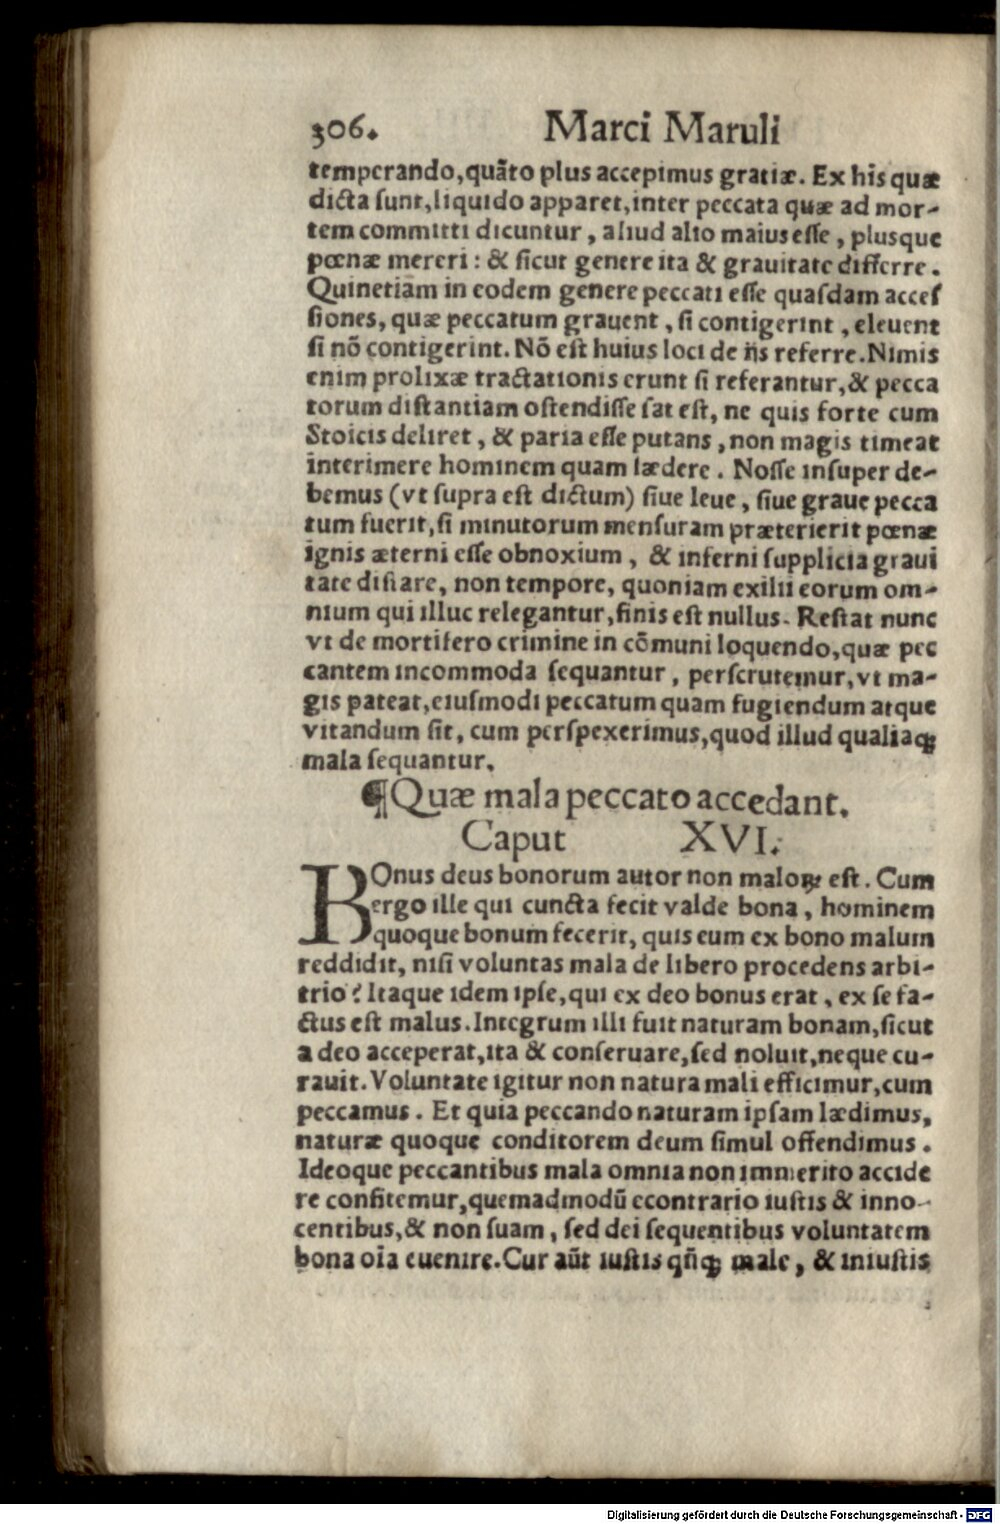 306. Marci Maruli
temperando,quãto plus accepimus gratiæ. Ex hĩs quæ
dicta ſunt,liquido apparet,inter peccata quæ ad mor-
tem committi dicuntur, aliud alio maius eſſe, plusque
pœnæ mereri: & ſicut genere ita & grauitate differre.
Quinetiam in eodem genere peccati eſſe quaſdam acceſ
ſiones, quæ peccatum grauent, ſi contigerint, eleuent
ſi nõ contigerint. Nõ eſt huius loci de ijs referre. Nimis
enim prolixæ tractationis erunt ſi referantur,& pecca
torum diſtantiam oſtendiſſe ſat eſt, ne quis forte cum
Stoicis deliret, & paria eſſe putans, non magis timeat
interimere hominem quam lædere. Noſſe inſuper de-
bemus (vt ſupra eſt dictum) ſiue leue, ſiue graue pecca
tum fuerit, ſi minutorum menſuram præterierit pœnæ
ignis æterni eſſe obnoxium, & inferni ſupplicia graui
tate diſtare, non tempore, quoniam exilii eorum om-
nium qui illuc relegantur,finis eſt nullus. Reſtat nunc
vt de mortifero crimine in cõmuni loquendo,quæ pec
cantem incommoda ſequantur, perſcrutemur,vt ma-
gis pateat,eiuſmodi peccatum quam fugiendum atque
vitandum ſit, cum perſpexerimus,quod illud qualiaqꝫ
mala ſequantur.
¶Quæ mala peccato accedant.
Caput XVI.
BOnus deus bonorum autor non maloꝝ eſt. Cum
ergo ille qui cuncta fecit valde bona, hominem
quoque bonum fecerit, quis eum ex bono malum
reddidit, niſi voluntas mala de libero procedens arbi-
trio? Itaque idem ipſe,qui ex deo bonus erat, ex ſe fa-
ctus eſt malus. Integrum illi fuit naturam bonam,ſicut
a deo acceperat,ita & conſeruare,ſed noluit,neque cu-
rauit. Voluntate igitur non natura mali efficimur,cum
peccamus. Et quia peccando naturam ipſam lædimus,
naturæ quoque conditorem deum ſimul offendimus.
Ideoque peccantibus mala omnia non immerito accide
re confitemur,quemadmodũ econtrario iuſtis & inno-
centibus,& non ſuam, ſed dei ſequentibus voluntatem
bona oĩa euenire. Cur aũt iuſtis qñqꝫ male, & iniuſtis
Digitalisierung gefördert durch die Deutsche Forschungsgemeinschaft - DFG